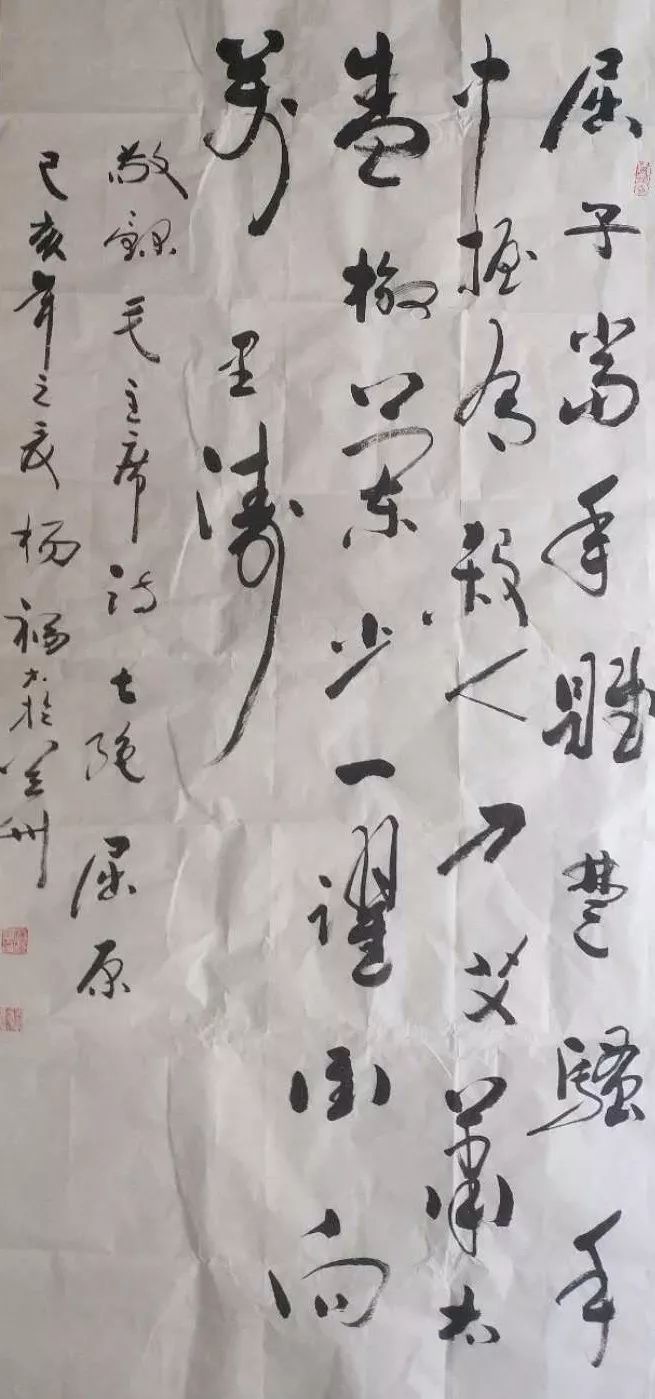 屈子當年賦楚騷手
中握有殺人刀艾蕭太
盛椒蘭少一躍衝向
萬里濤
敬錄毛主席詩七绝 屈原
己亥年之夏 杨福於兰州